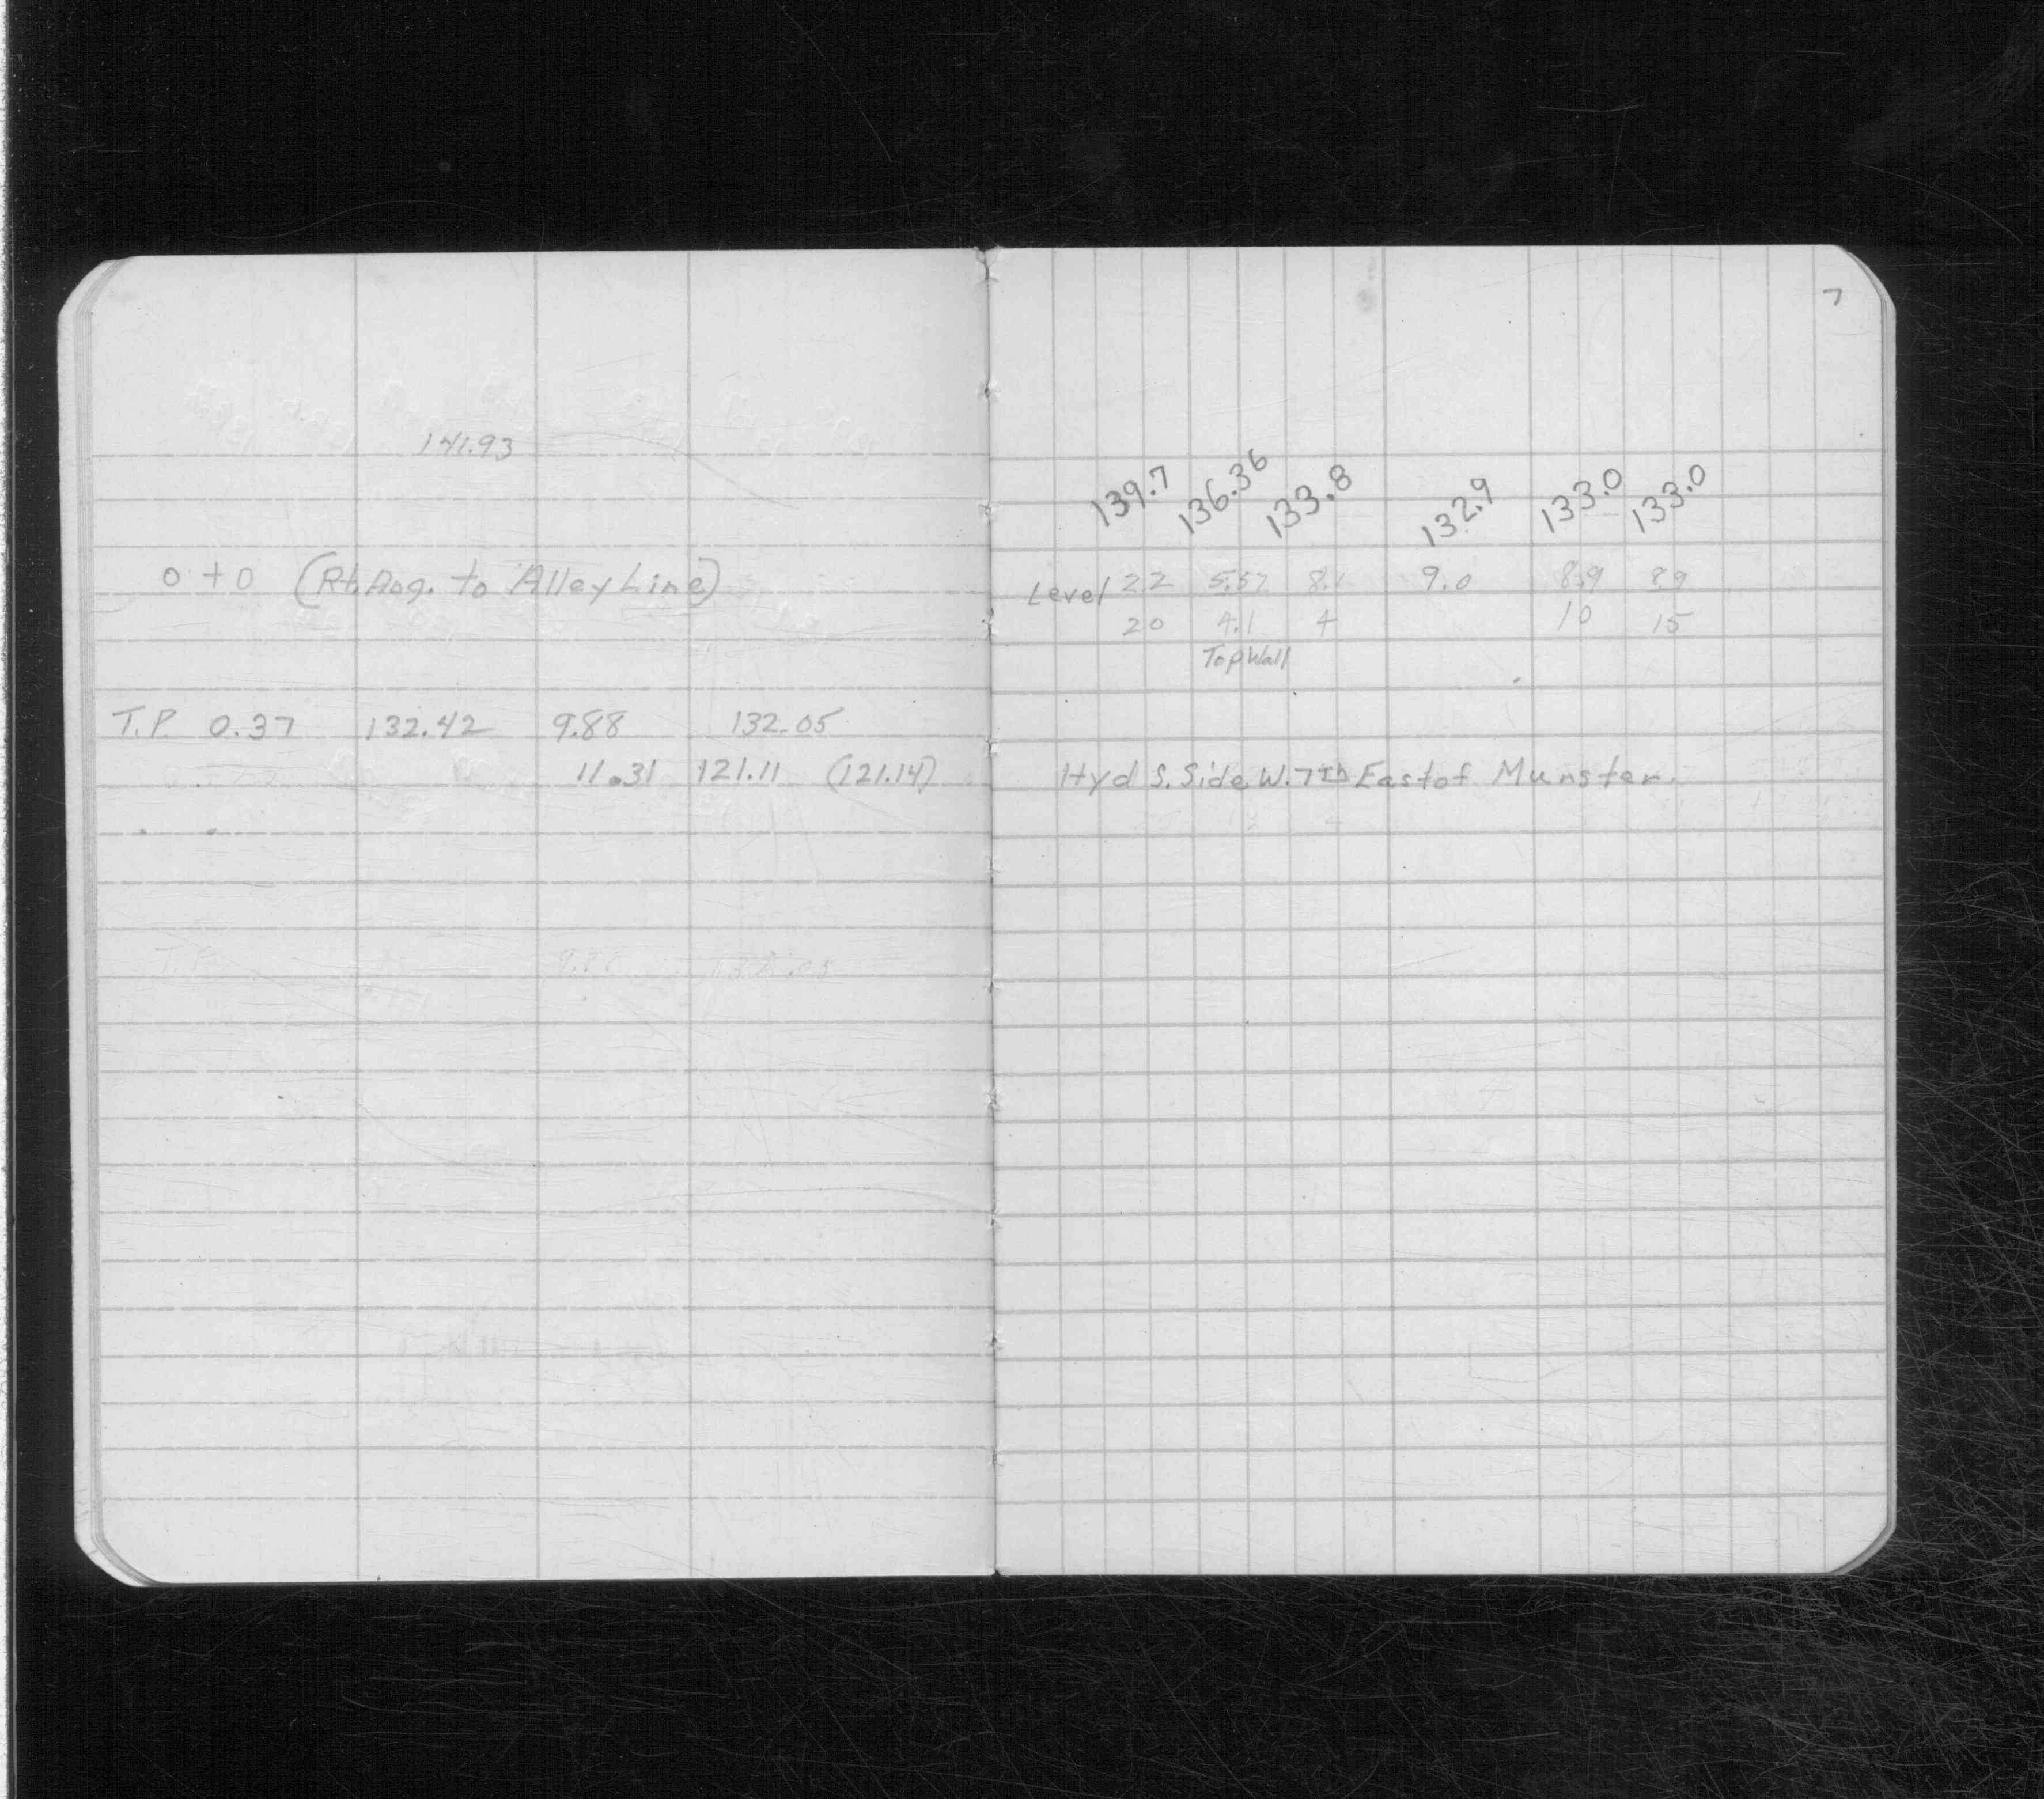 7
141.93
139.7 136.36 133.8 132.9 133.0 133.0
0+0 (Rt. Ang. to Alley Line)
Level 22 5.57 8.1 9.0 8.9 8.9
20 4.1 4 10 15
Top Wall
T.P. 0.37 132.42 9.88 132.05
11.31 121.11 (121.14) Hyd S. Side W. 7th East of Munster.
T.P. 9.88 132.05